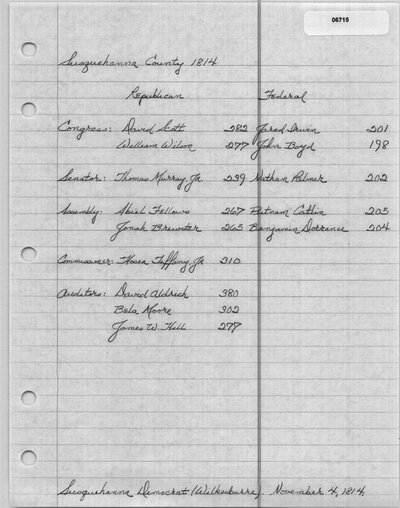 06715
Susquehanna County 1814
Republican Federal
Congress: David Scott 282 Jared Irwin 201
William Wilson 277 John Boyd 198
Senator: Thomas Murray Jr. 239 Nathan Palmer 202
Assembly: Abiah Fellows 267 Putnam Catlin 205
Jonah Brewster 265 Benjamin Dorrance 204
Commissioner: Hosea Tiffany Jr 310
Auditors: David Aldrich 380
Bela Moore 302
James W. Hill 277
Susquehanna Democrat (Wilkesbarre). November 4, 1814.